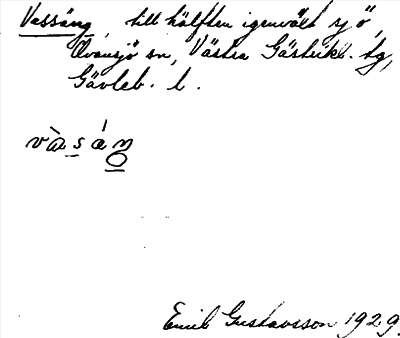 Vassäng, till hälften igenvält sjö,
Ovansjö sn, Västra Gästrikl. tg,
Gävleb. l.
vàsán
Emil Gustavsson 1929.